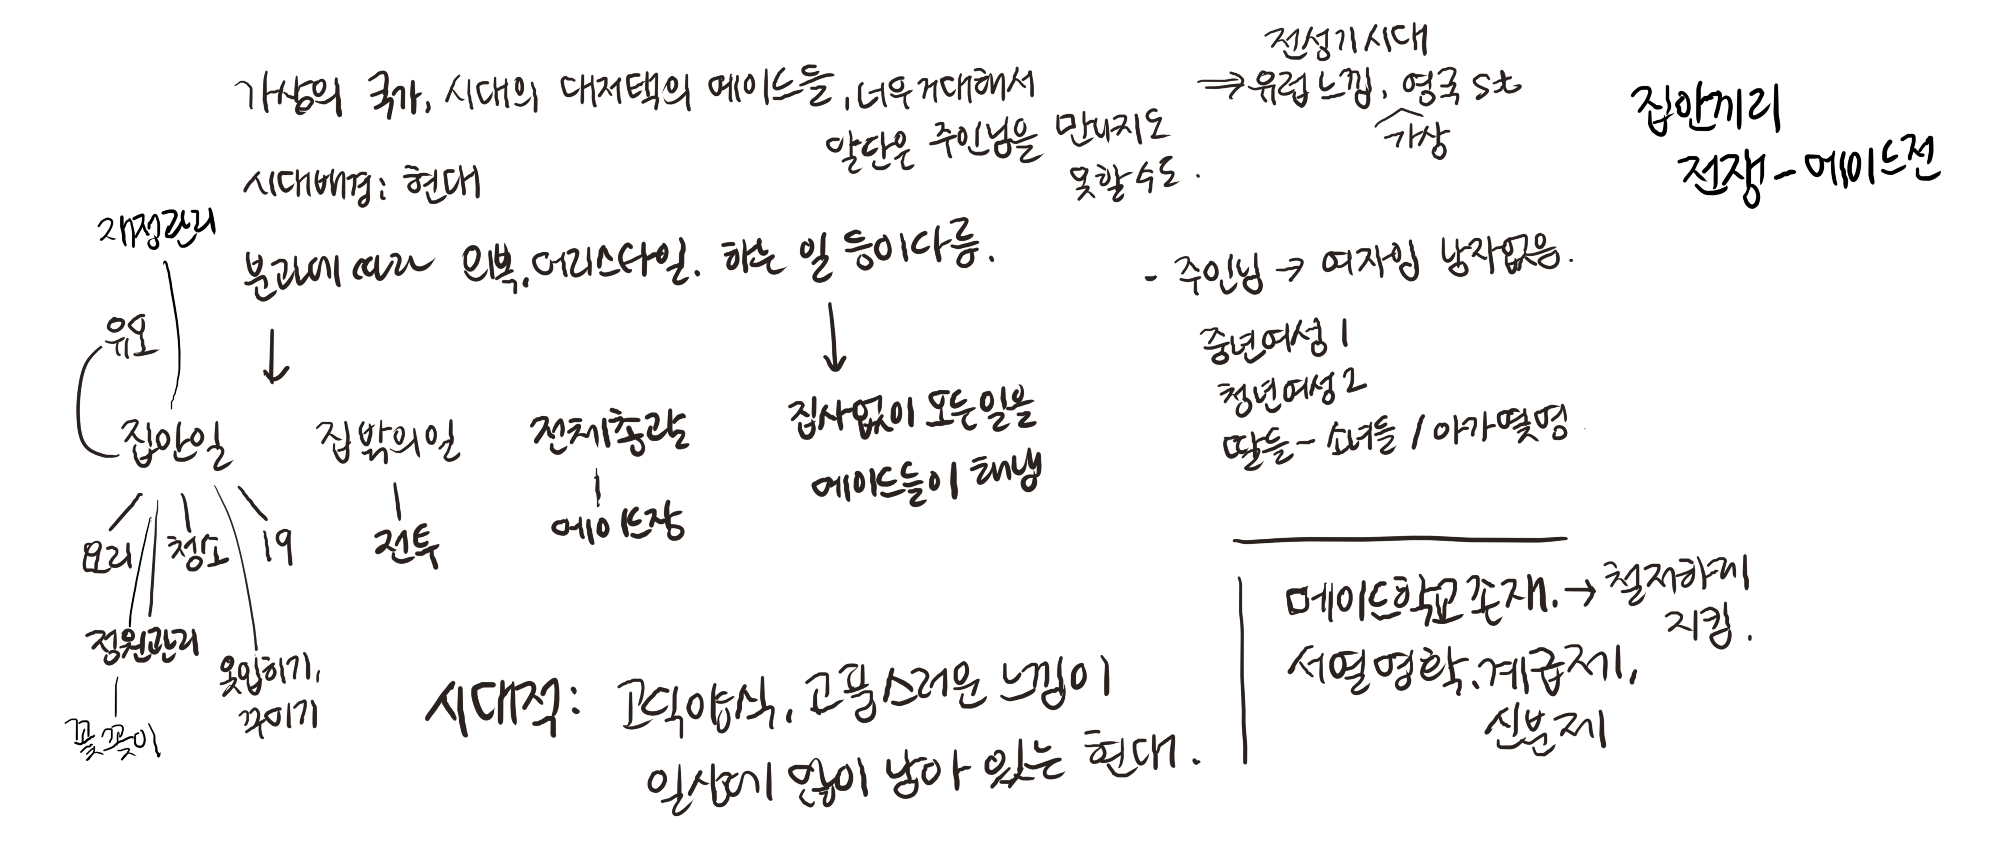 가상의 국가, 시대의 대저택의 메이드들, 너무 거대해서
말단은 주인님을 만나지도
못할 수도.
전성기시대
⇒ 유럽느낌, 영국 st
가상
집안끼리
전쟁 - 메이드전
시대배경: 현대
분과에 따라 의복, 머리스타일, 하는 일 등이 다름.
재정관리
유모
집안일
요리
청소
19
정원관리
꽃꽂이
옷입히기,
꾸미기
집 밖의 일
전투
전체총괄
메이드장
집사없이 모든일을
메이드들이 해냄
- 주인님 → 여자임 남자없음.
중년여성 1
청년여성 2
딸들 - 소녀들 / 아가 몇명
메이드학교 존재. → 철저하게
지킴.
서열명확, 계급제기,
신분제
시대적: 고딕양식, 고풍스러운 느낌이
일상에 많이 남아 있는 현대.